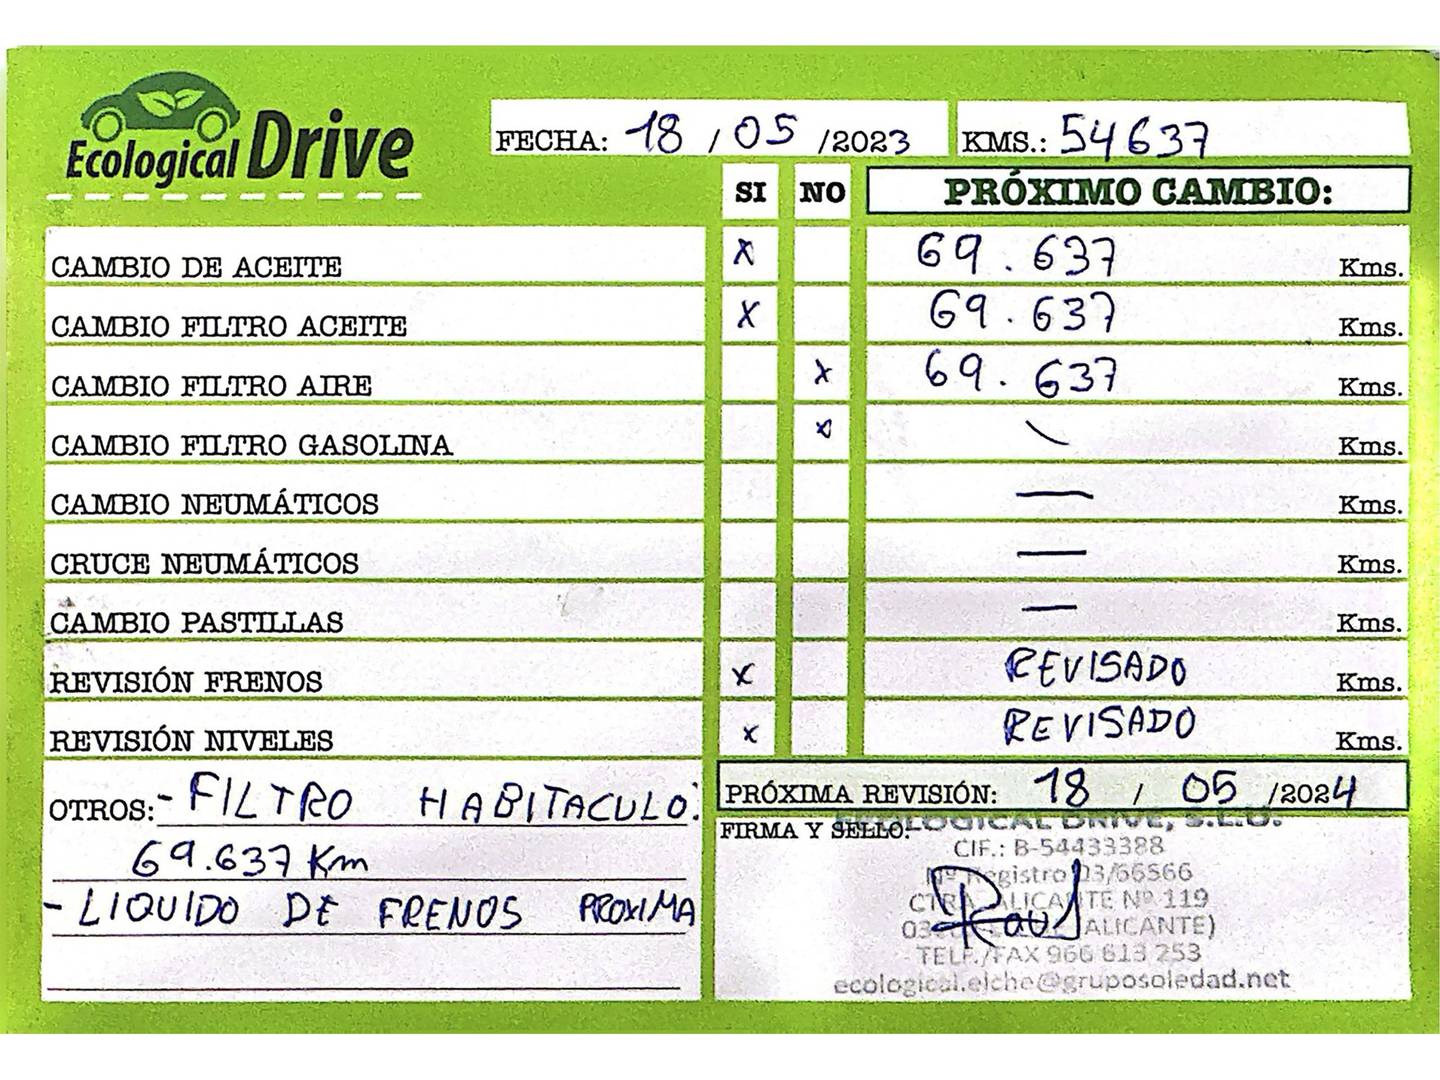 Ecological Drive
FECHA: 18 / 05 /2023 KMS.: 54637
SI NO PRÓXIMO CAMBIO:
CAMBIO DE ACEITE x 69.637 Kms.
CAMBIO FILTRO ACEITE x 69.637 Kms.
CAMBIO FILTRO AIRE x 69.637 Kms.
CAMBIO FILTRO GASOLINA x — Kms.
CAMBIO NEUMÁTICOS — Kms.
CRUCE NEUMÁTICOS — Kms.
CAMBIO PASTILLAS — Kms.
REVISIÓN FRENOS x REVISADO Kms.
REVISIÓN NIVELES x REVISADO Kms.
OTROS: - FILTRO HABITACULO:
69.637 Km
- LIQUIDO DE FRENOS PROXIMA
PRÓXIMA REVISIÓN: 18 / 05 /2024
FIRMA Y SELLO:
ECOLOGICAL DRIVE, S.L.U.
CIF.: B-54433388
Nº Registro 03/66566
CTRA. ALICANTE Nº 119
(ALICANTE)
TELF./FAX 966 613 253
ecological.elche@gruposoledad.net